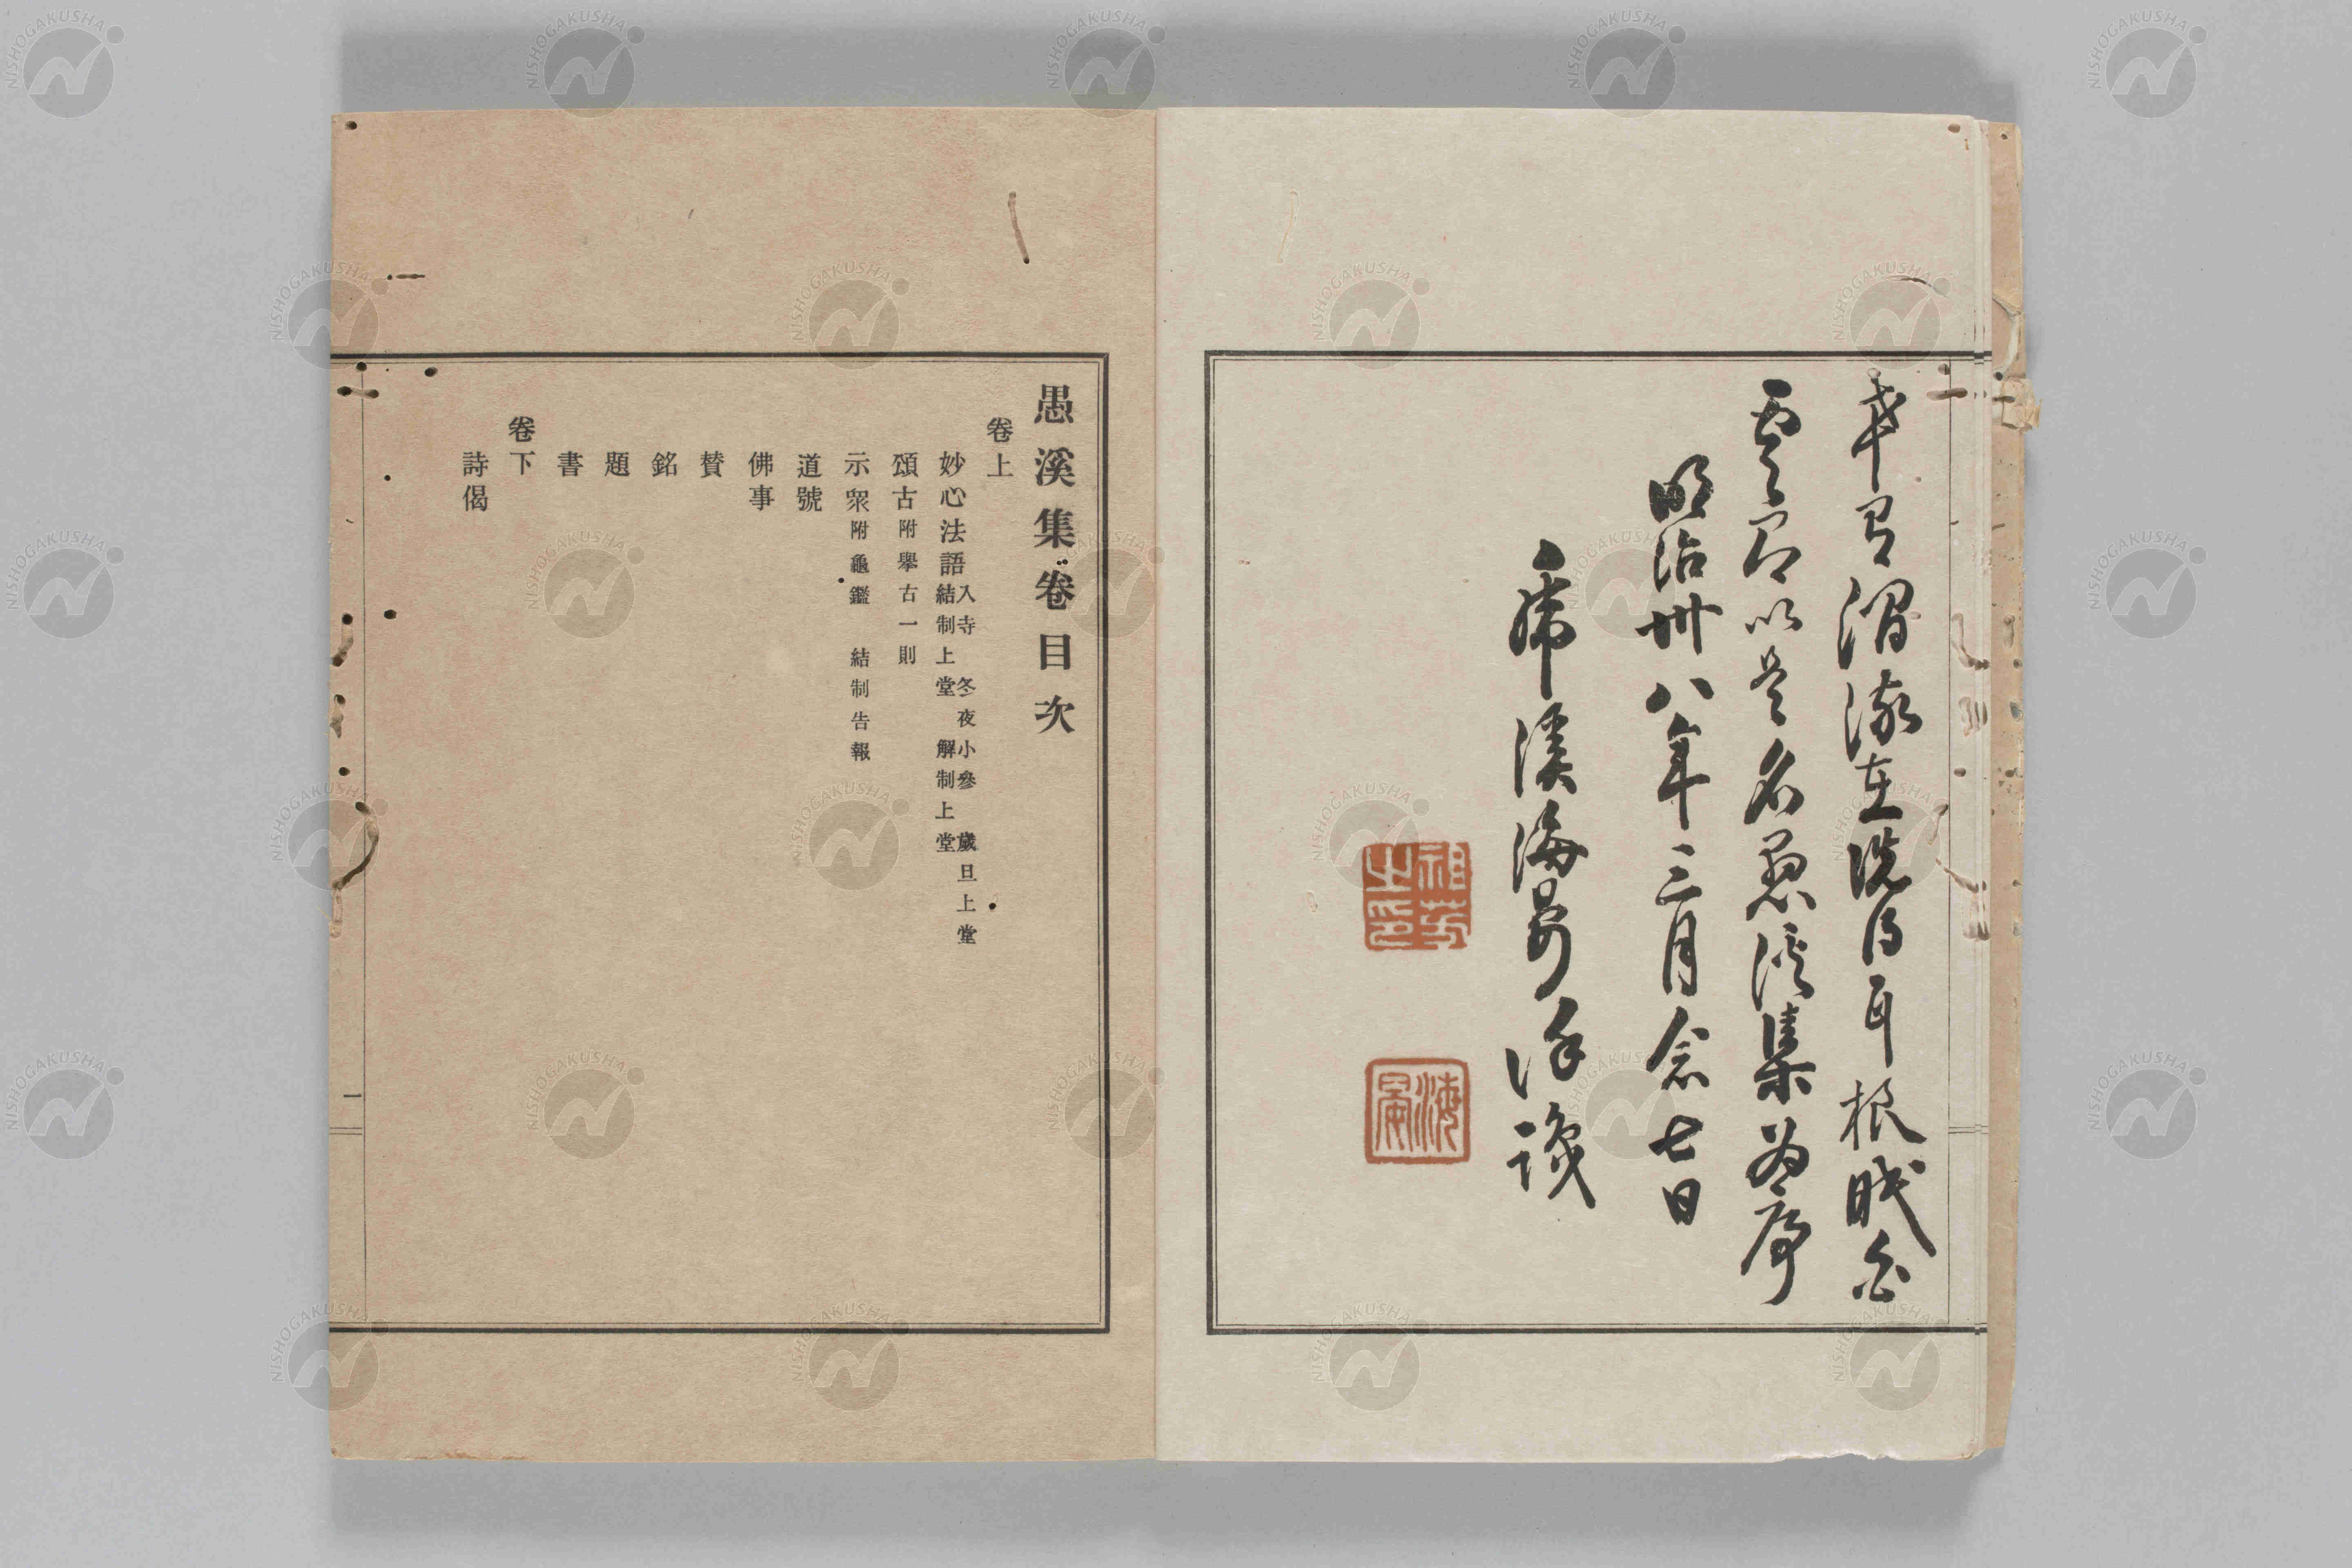 在洗得耳根
以是名愚溪集為序
明治卅八年三月念七日
虎溪海晏
之印
海晏
愚溪集卷目次
卷上
妙心法語 入寺 冬夜小參 歲旦上堂
結制上堂 解制上堂
頌古 附擧古一則
示衆 附龜鑑 結制告報
道號
佛事
賛
銘
題
書
卷下
詩偈
一
NISHOGAKUSHA